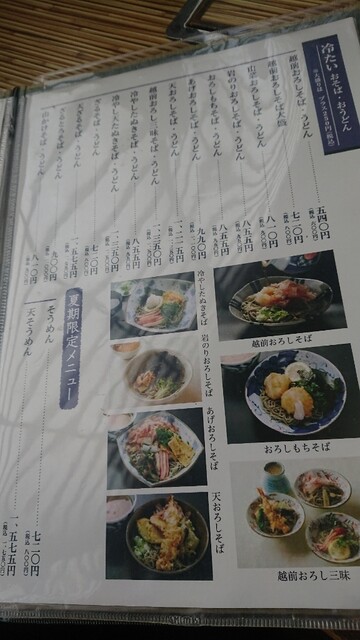 冷たい おそば・おうどん
越前おろしそば・うどん 五四〇円
越前おろしそば大盛 七二〇円
山菜おろしそば・うどん 八一〇円
岩のりおろしそば・うどん 八五五円
おろしもちそば・うどん 八五五円
あげおろしそば・うどん 九九〇円
天おろしそば・うどん 一、二一五円
越前おろし三昧そば・うどん 一、三五〇円
冷やしたぬきそば・うどん 八五五円
冷やし天たぬきそば・うどん 一、三五〇円
ざるそば・うどん 七二〇円
天ざるそば・うどん 一、五七五円
ざるとろそば・うどん 九〇〇円
山かけそば・うどん 八一〇円
夏期限定メニュー
そうめん 七二〇円
(税込 八〇〇円)
天そうめん 一、五七五円
(税込 一、七五〇円)
冷やしたぬきそば
岩のりおろしそば
あげおろしそば
天おろしそば
越前おろしそば
おろしもちそば
越前おろし三昧